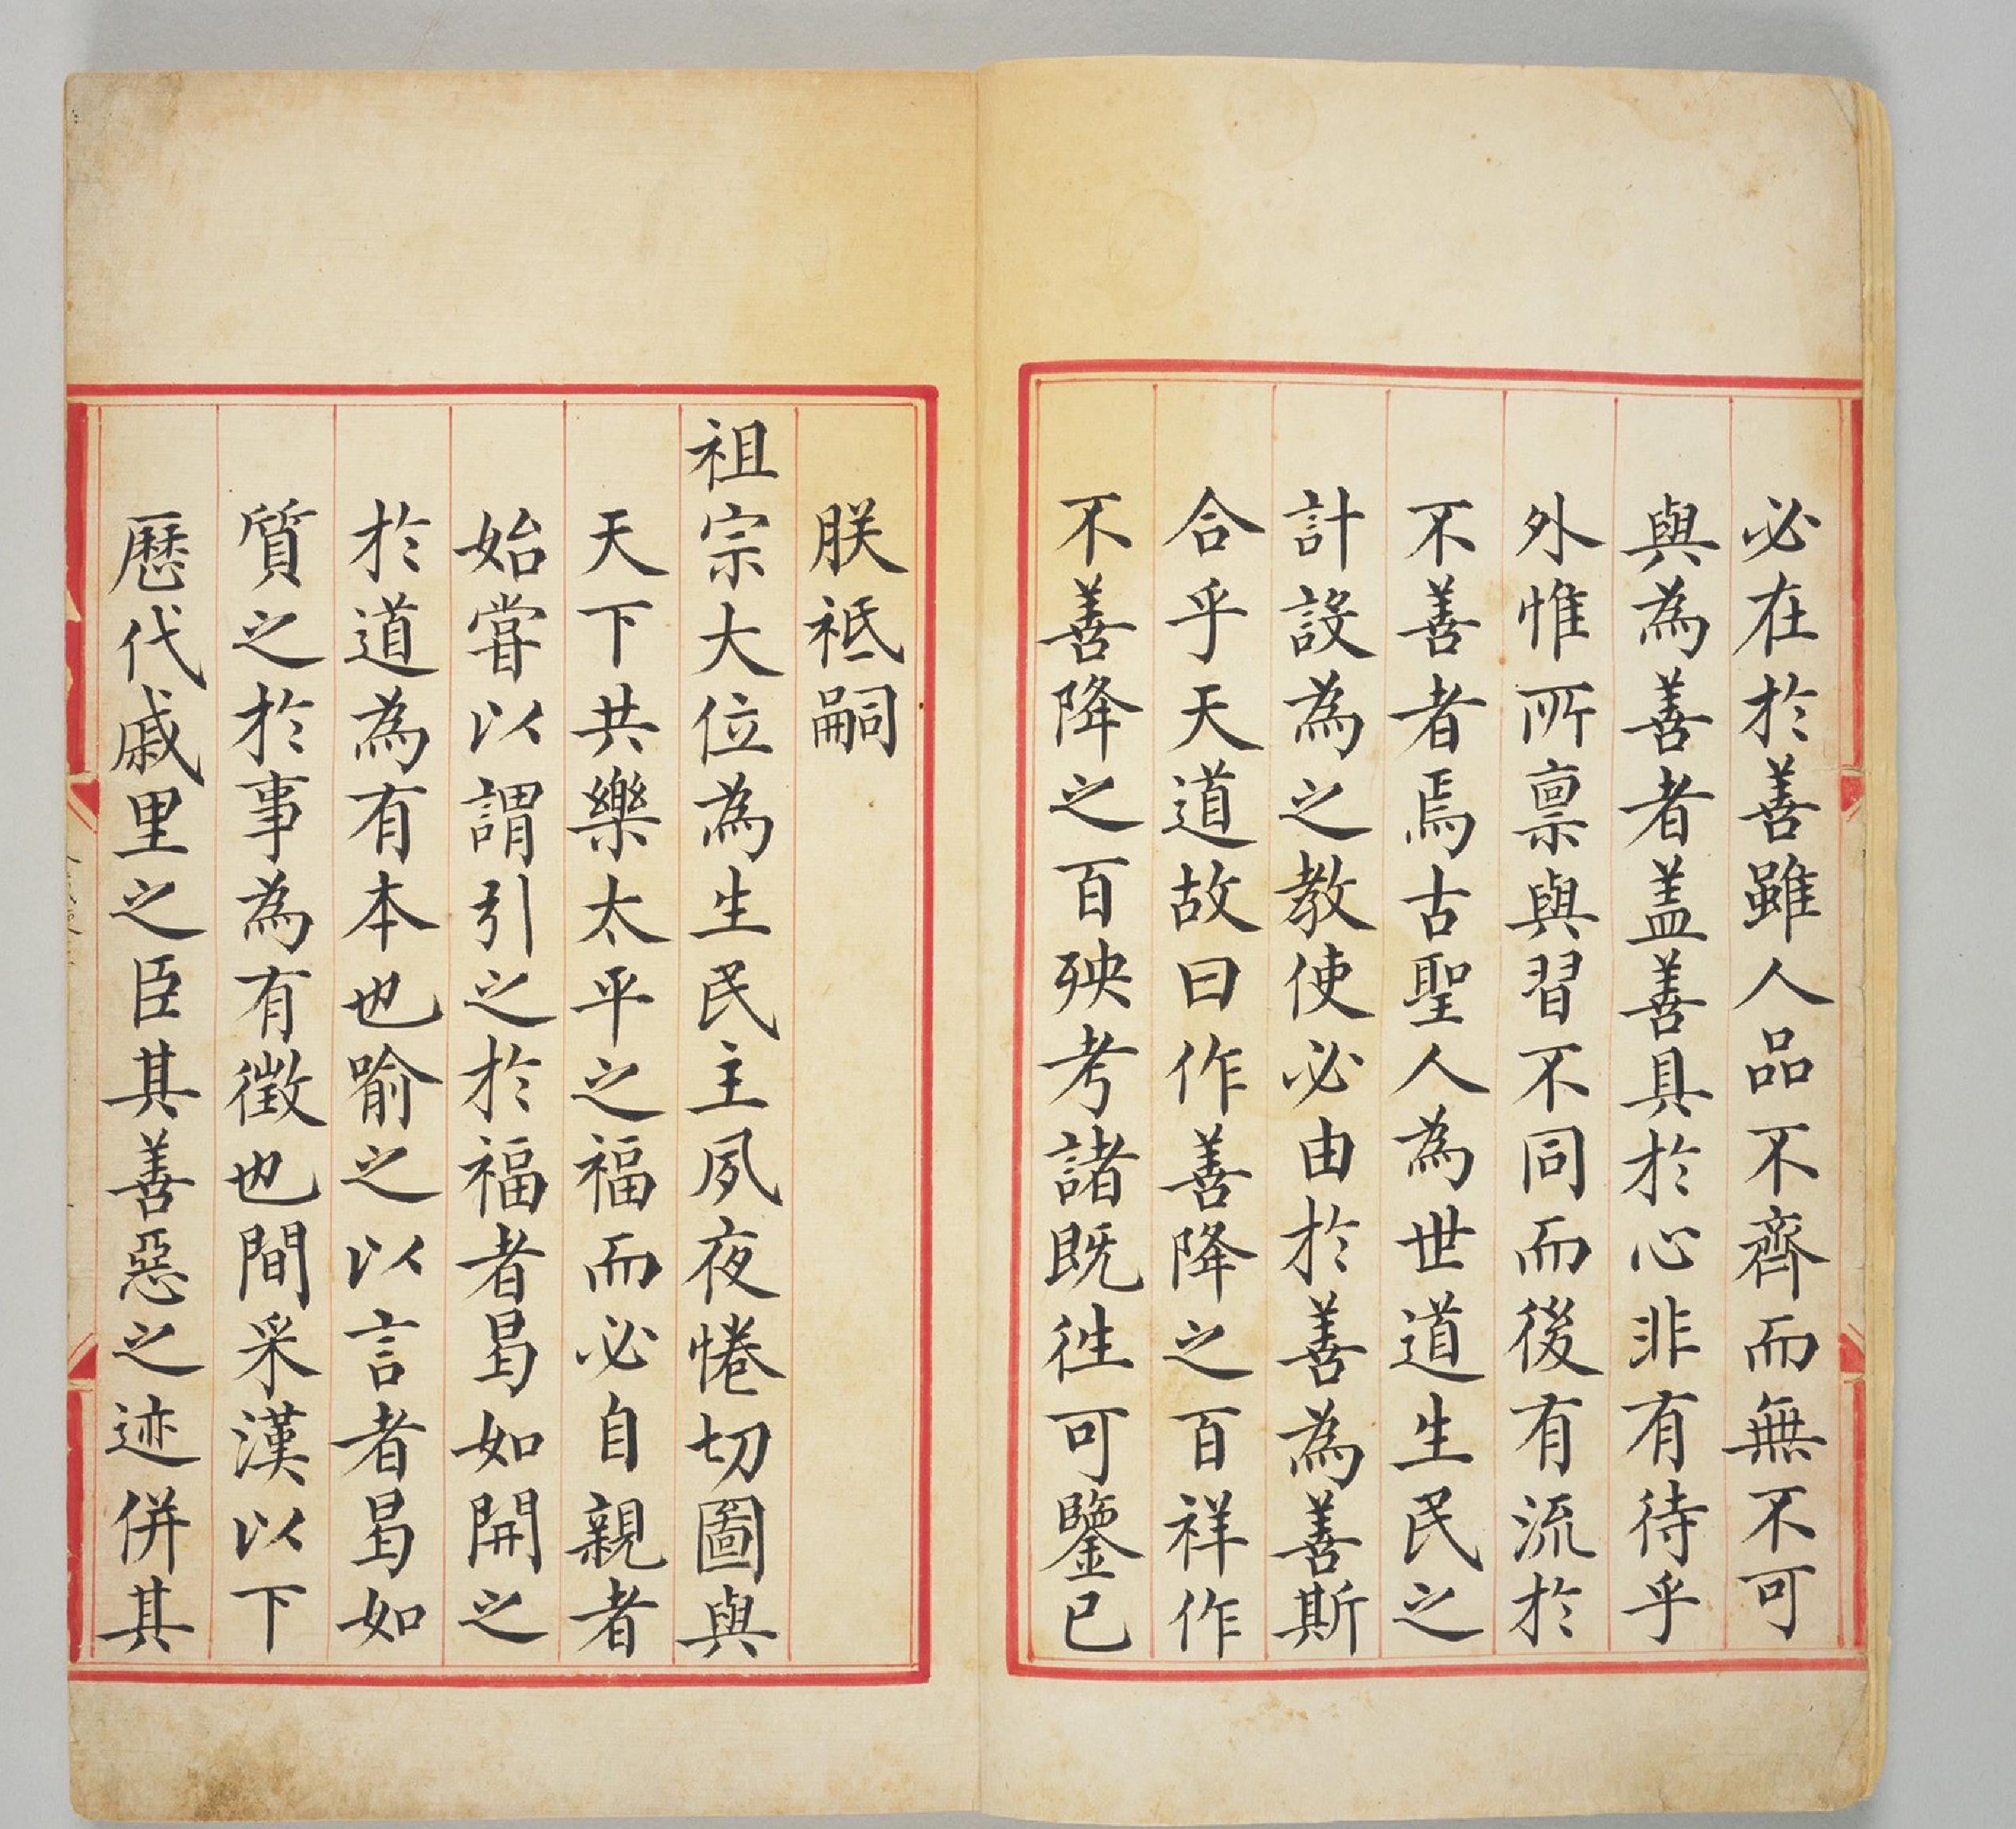 必在於善雖人品不齊而無不可
與為善者盖善具於心非有待乎
外惟所禀與習不同而後有流於
不善者焉古聖人為世道生民之
計設為之教使必由於善為善斯
合乎天道故曰作善降之百祥作
不善降之百殃考諸既徃可鑒已
朕祗嗣
祖宗大位為生民主夙夜惓切圖與
天下共樂太平之福而必自親者
始嘗以謂引之於福者曷如開之
於道為有本也喻之以言者曷如
質之於事為有徵也間采漢以下
歷代戚里之臣其善惡之迹併其